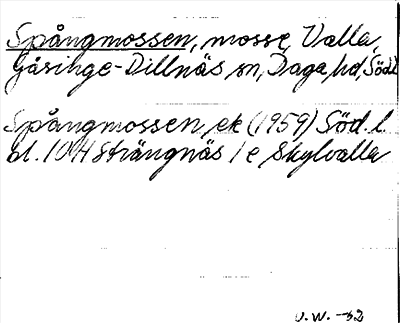 Spångmossen, mosse, Valla,
Gåsinge-Dillnäs sn, Daga hd, Södl
Spångmossen, ek (1959) Söd. l.
bl. 10 H Strängnäs 1 e Skylvalla
U.W. -52